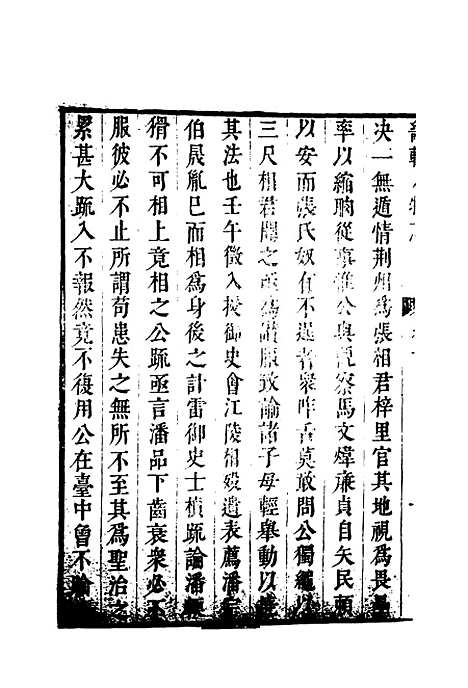 決一無遁情荆州為張相君梓里官其地視為畏
率以縮朒從事惟公與察馬文煒亷貞自矢民頼
以安而張氏奴有不逞者衆咋舌莫敢問公獨繩以
三尺相君聞之亟為謝原致論諸子母輕舉動以
其法也壬午徴入授御史會江陵相殁遺表薦潘
伯晟胤巳而相為身後之計雷御史士楨疏論潘
猾不可相上竟相之公䟽亟言潘品下齒衰衆必不
服彼必不止所謂苟患失之無所不至其為聖治之
累甚大䟽入不報然竟不復用公在臺中曾不